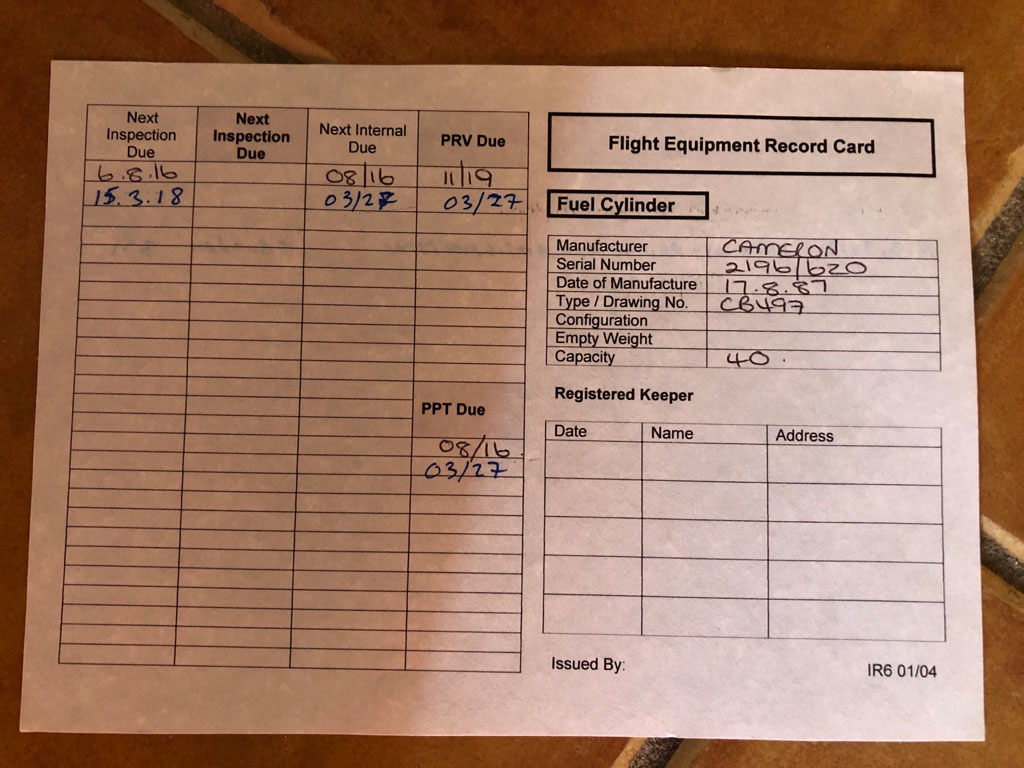 Next Inspection Due
Next Inspection Due
Next Internal Due
PRV Due
6.8.16 08/16 11/19
15.3.18 03/27 03/27
PPT Due
08/16
03/27
Flight Equipment Record Card
Fuel Cylinder
Manufacturer CAMERON
Serial Number 2196/620
Date of Manufacture 17.8.87
Type / Drawing No. CB497
Configuration
Empty Weight
Capacity 40.
Registered Keeper
Date Name Address
Issued By:
IR6 01/04